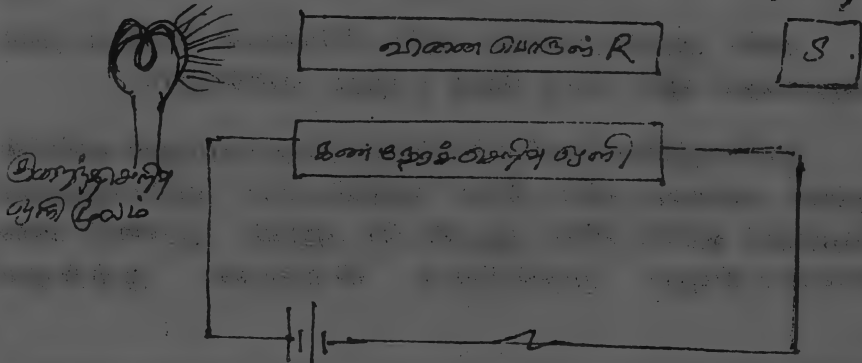 வினை பொருள் R
S
குறைந்தசெறிவு
ஒளி மூலம்
கண நேரச் செறிவு ஒளி